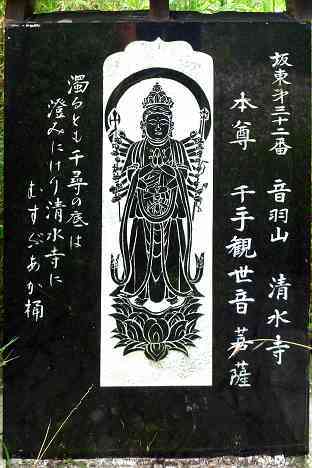 坂東第三十二番 音羽山 清水寺
本尊 千手観世音菩薩
濁るとも千尋の底は
澄みにけり清水寺に
むすぶあか桶